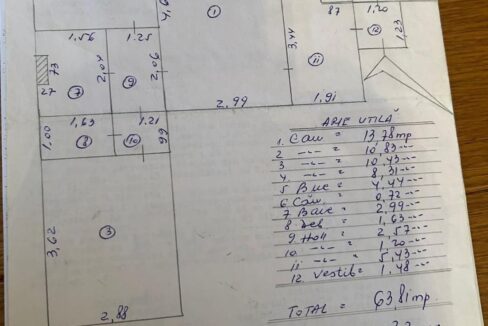 4,6
1
87
1,20
12
1,23
1,56
1.25
3,44
11
73
2,04
2,06
27
7
9
2,99
1,91
1,00
1,63
8
1.21
10
99
3,62
3
2,88
ARIE UTILĂ
1. Cam = 13,78mp
2 -"- = 10,83 -"-
3 -"- = 10,43 -"-
4 -"- = 8,31 -"-
5 Buc = 4,44 -"-
6 Căm = 0,72 -"-
7 Baie = 2,99 -"-
8 Deb = 1,63 -"-
9 Holl = 2,57 -"-
10 -"- = 1,20 -"-
11 -"- = 5,43 -"-
12. Vestib = 1,48 -"-
TOTAL = 63,81mp